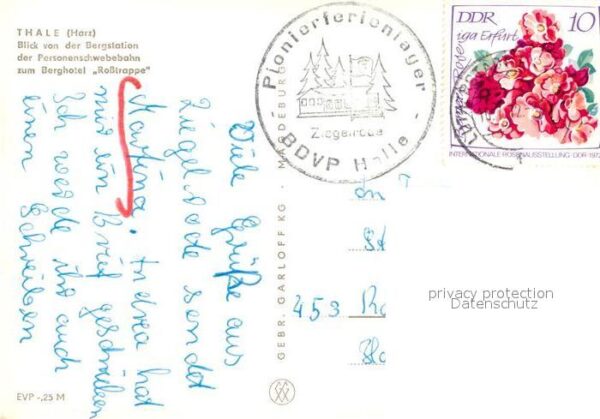 THALE (Harz)
Blick von der Bergstation
der Personenschwebebahn
zum Berghotel „Roßtrappe"
Viele Grüße aus
Ziegelrode sendet
Martina. Andrea hat
mir ein Brief geschrieben
Ich werde ihr auch
einen schreiben
EVP -,25 M
GEBR. GARLOFF KG · MAGDEBURG
Pionierferienlager
Ziegelrode
- BDVP Halle -
DDR 10
iga Erfurt
INTERNATIONALE ROSENAUSSTELLUNG · DDR 1972
An
453 Ro
privacy protection
Datenschutz